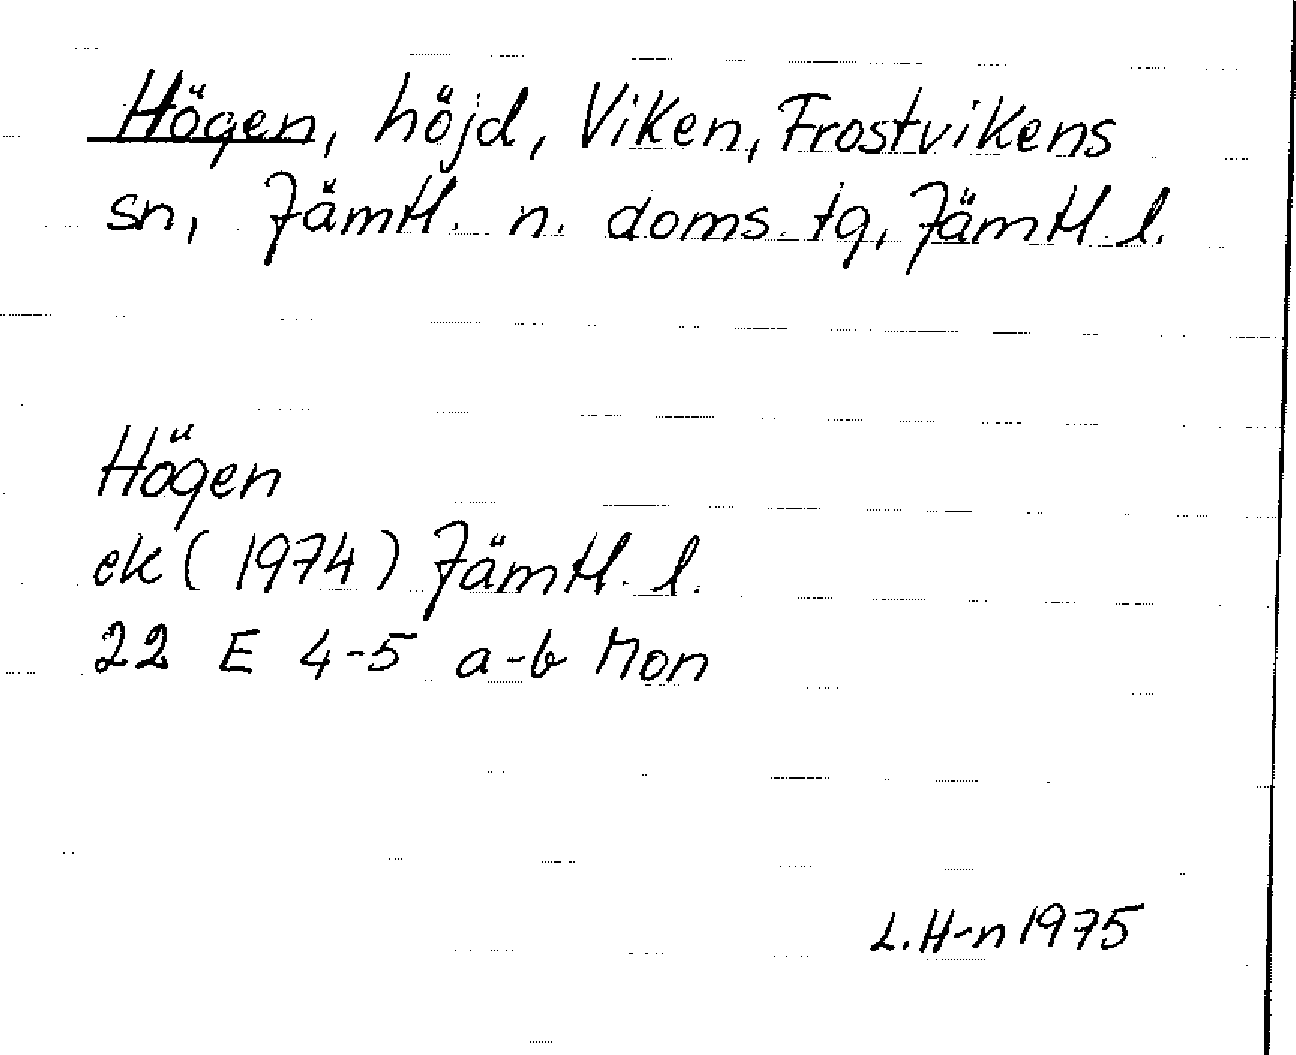 Högen, höjd, Viken, Frostvikens
sn, Jämtl. n. doms. tg, Jämtl. l.
Högen
ek (1974) Jämtl. l.
22 E 4-5 a-b Mon
L. H-n 1975